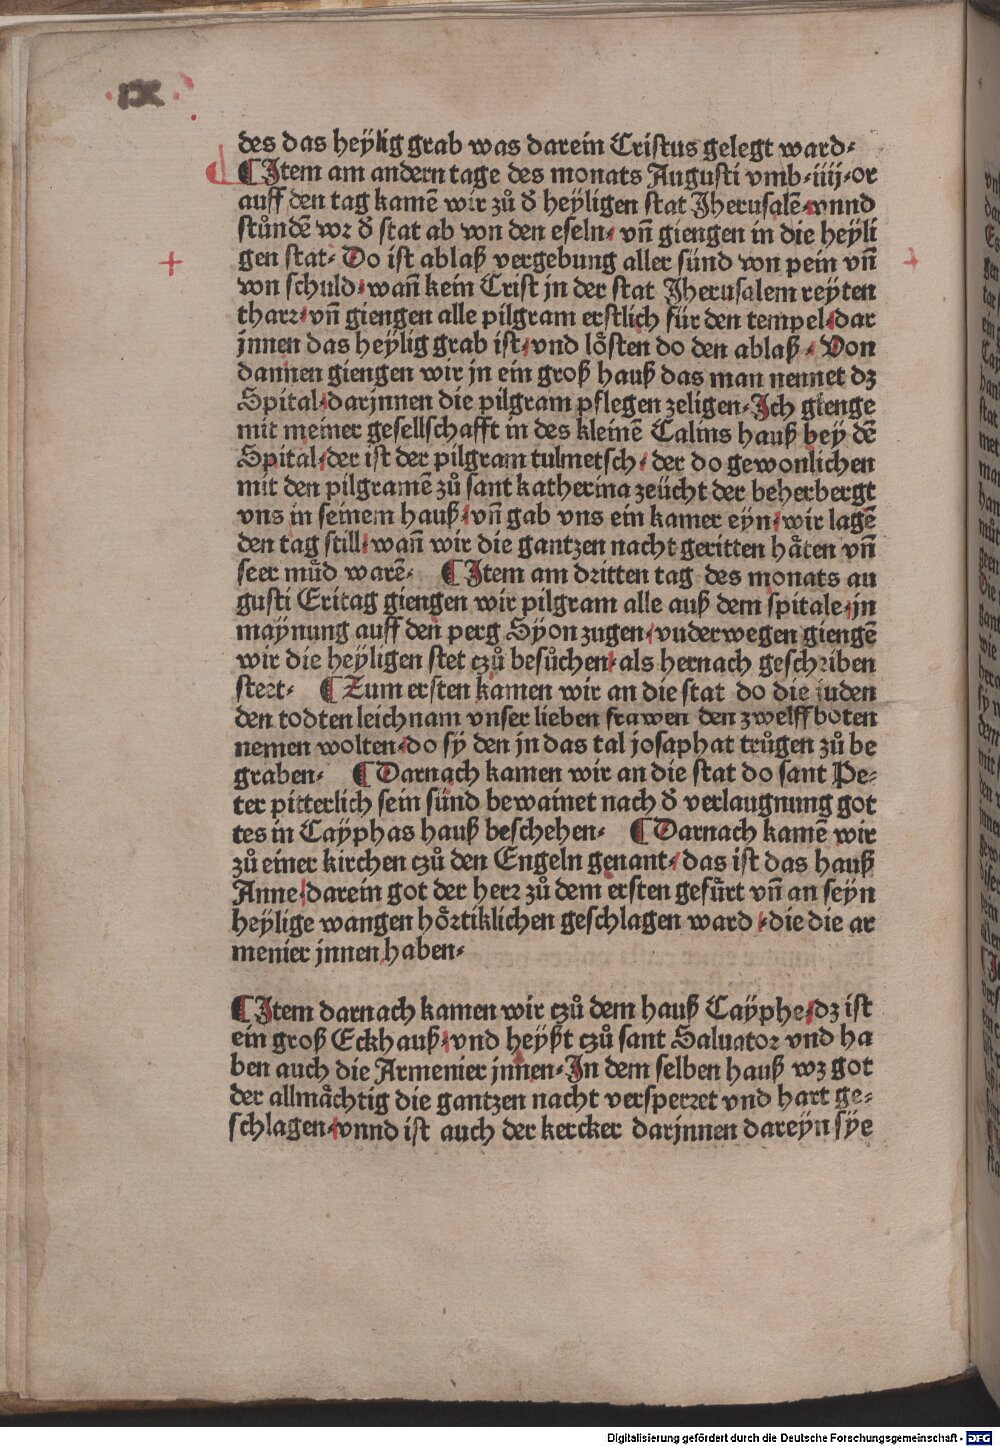 IX
des das heÿlig grab was darein Cristus gelegt ward⸗
¶ Item am andern tage des monats Augusti vmb⸗iiij⸗or
auff den tag kamē wir zů d̄ heÿligen stat Jherusalē⸗vnnd
stůndē vꝛ d̄ stat ab von den eseln⸗ vn̄ giengen in die heÿli
gen stat⸗ Do ist ablaß vergebung aller sünd von pein vn̄
von schuld⸗wan̄ kein Crist jn der stat Jherusalem reÿten
tharꝛ⸗vn̄ giengen alle pilgram erstlich für den tempel⸗dar
jnnen das heÿlig grab ist⸗vnd loͤsten do den ablaß⸗ Von
dannen giengen wir jn ein groß hauß das man nennet dz
Spital⸗darjnnen die pilgram pflegen zeligen⸗Ich gienge
mit meiner gesellschafft in des kleinē Calins hauß bey dē
Spital⸗der ist der pilgram tulmetsch⸗ der do gewonlichen
mit den pilgramē zů sant katherina zeücht der beherbergt
vns in seinem hauß⸗vn̄ gab vns ein kamer eyn⸗wir lagē
den tag still⸗wan̄ wir die gantzen nacht geritten haͤten vn̄
seer muͤd warē⸗ ¶ Item am dritten tag des monats au
gusti Eritag giengen wir pilgram alle auß dem spitale⸗jn
maÿnung auff den perg Sÿon zugen⸗vnderwegen giengē
wir die heÿligen stet czů besůchen⸗als hernach geschꝛiben
steꝛt⸗ ¶ Zum ersten kamen wir an die stat do die juden
den todten leichnam vnser lieben frawen den zwelffboten
nemen wolten⸗do sÿ den jn das tal josaphat trůgen zů be
graben⸗ ¶ Darnach kamen wir an die stat do sant Pe⸗
ter pitterlich sein sünd bewainet nach d̄ verlaugnung got
tes in Caÿphas hauß beschehen⸗ ¶ Darnach kamē wir
zů einer kirchen czů den Engeln genant⸗ das ist das hauß
Anne⸗darein got der herꝛ zů dem ersten gefuͤrt vn̄ an seyn
heÿlige wangen hoͤrtiklichen geschlagen ward⸗die die ar
menier jnnen haben⸗
¶ Item darnach kamen wir czů dem hauß Caÿphe⸗dz ist
ein groß Eckhauß⸗vnd heÿßt czů sant Saluatoꝛ vnd ha
ben auch die Armenier jnnen⸗In dem selben hauß wz got
der allmaͤchtig die gantzen nacht versperꝛet vnd hart ge⸗
schlagen⸗vnnd ist auch der kercker darjnnen dareÿn sÿe
Digitalisierung gefördert durch die Deutsche Forschungsgemeinschaft - DFG